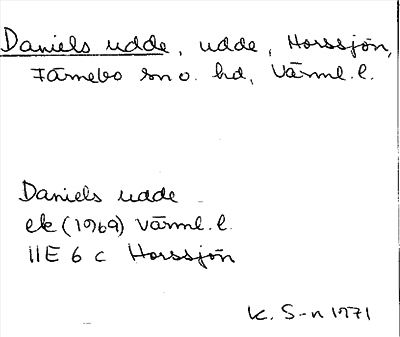 Daniels udde, udde, Horssjön,
Färnebo sn o. hd, Värml. l.
Daniels udde
ek (1969) Värml. l.
11E 6 c Horssjön
K. S-n 1971